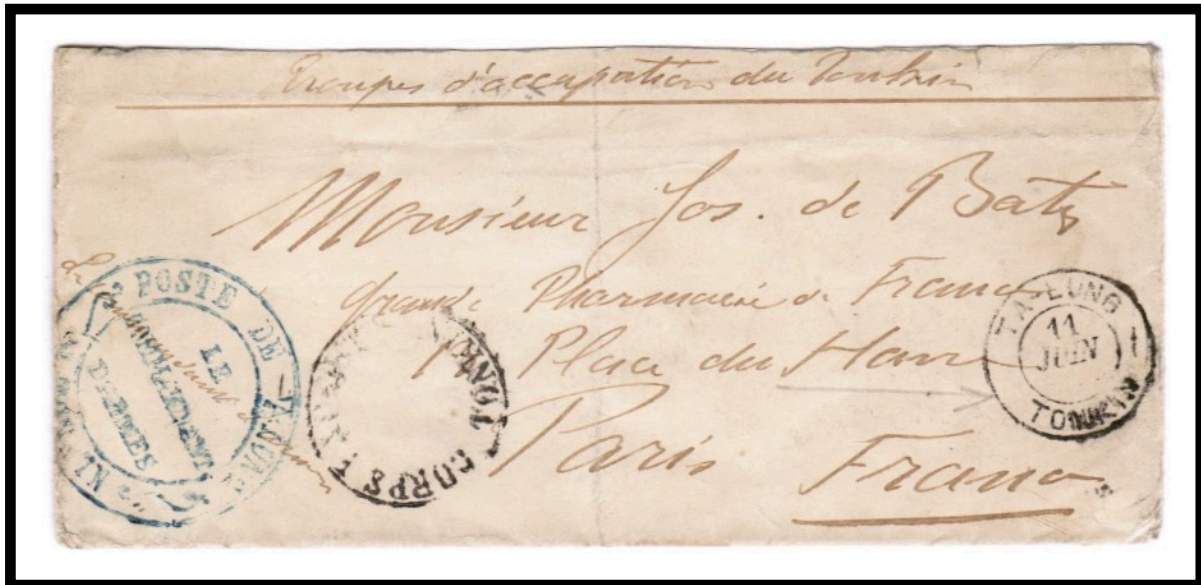 Troupes d'occupation du Tonkin
Monsieur Jos. de Batz
Grande Pharmacie de France
Place du Havre
Paris France
POSTE DE
LE COMMANDANT D'ARMES
CORPS
TA-LUNG
11
JUIN
TONKIN